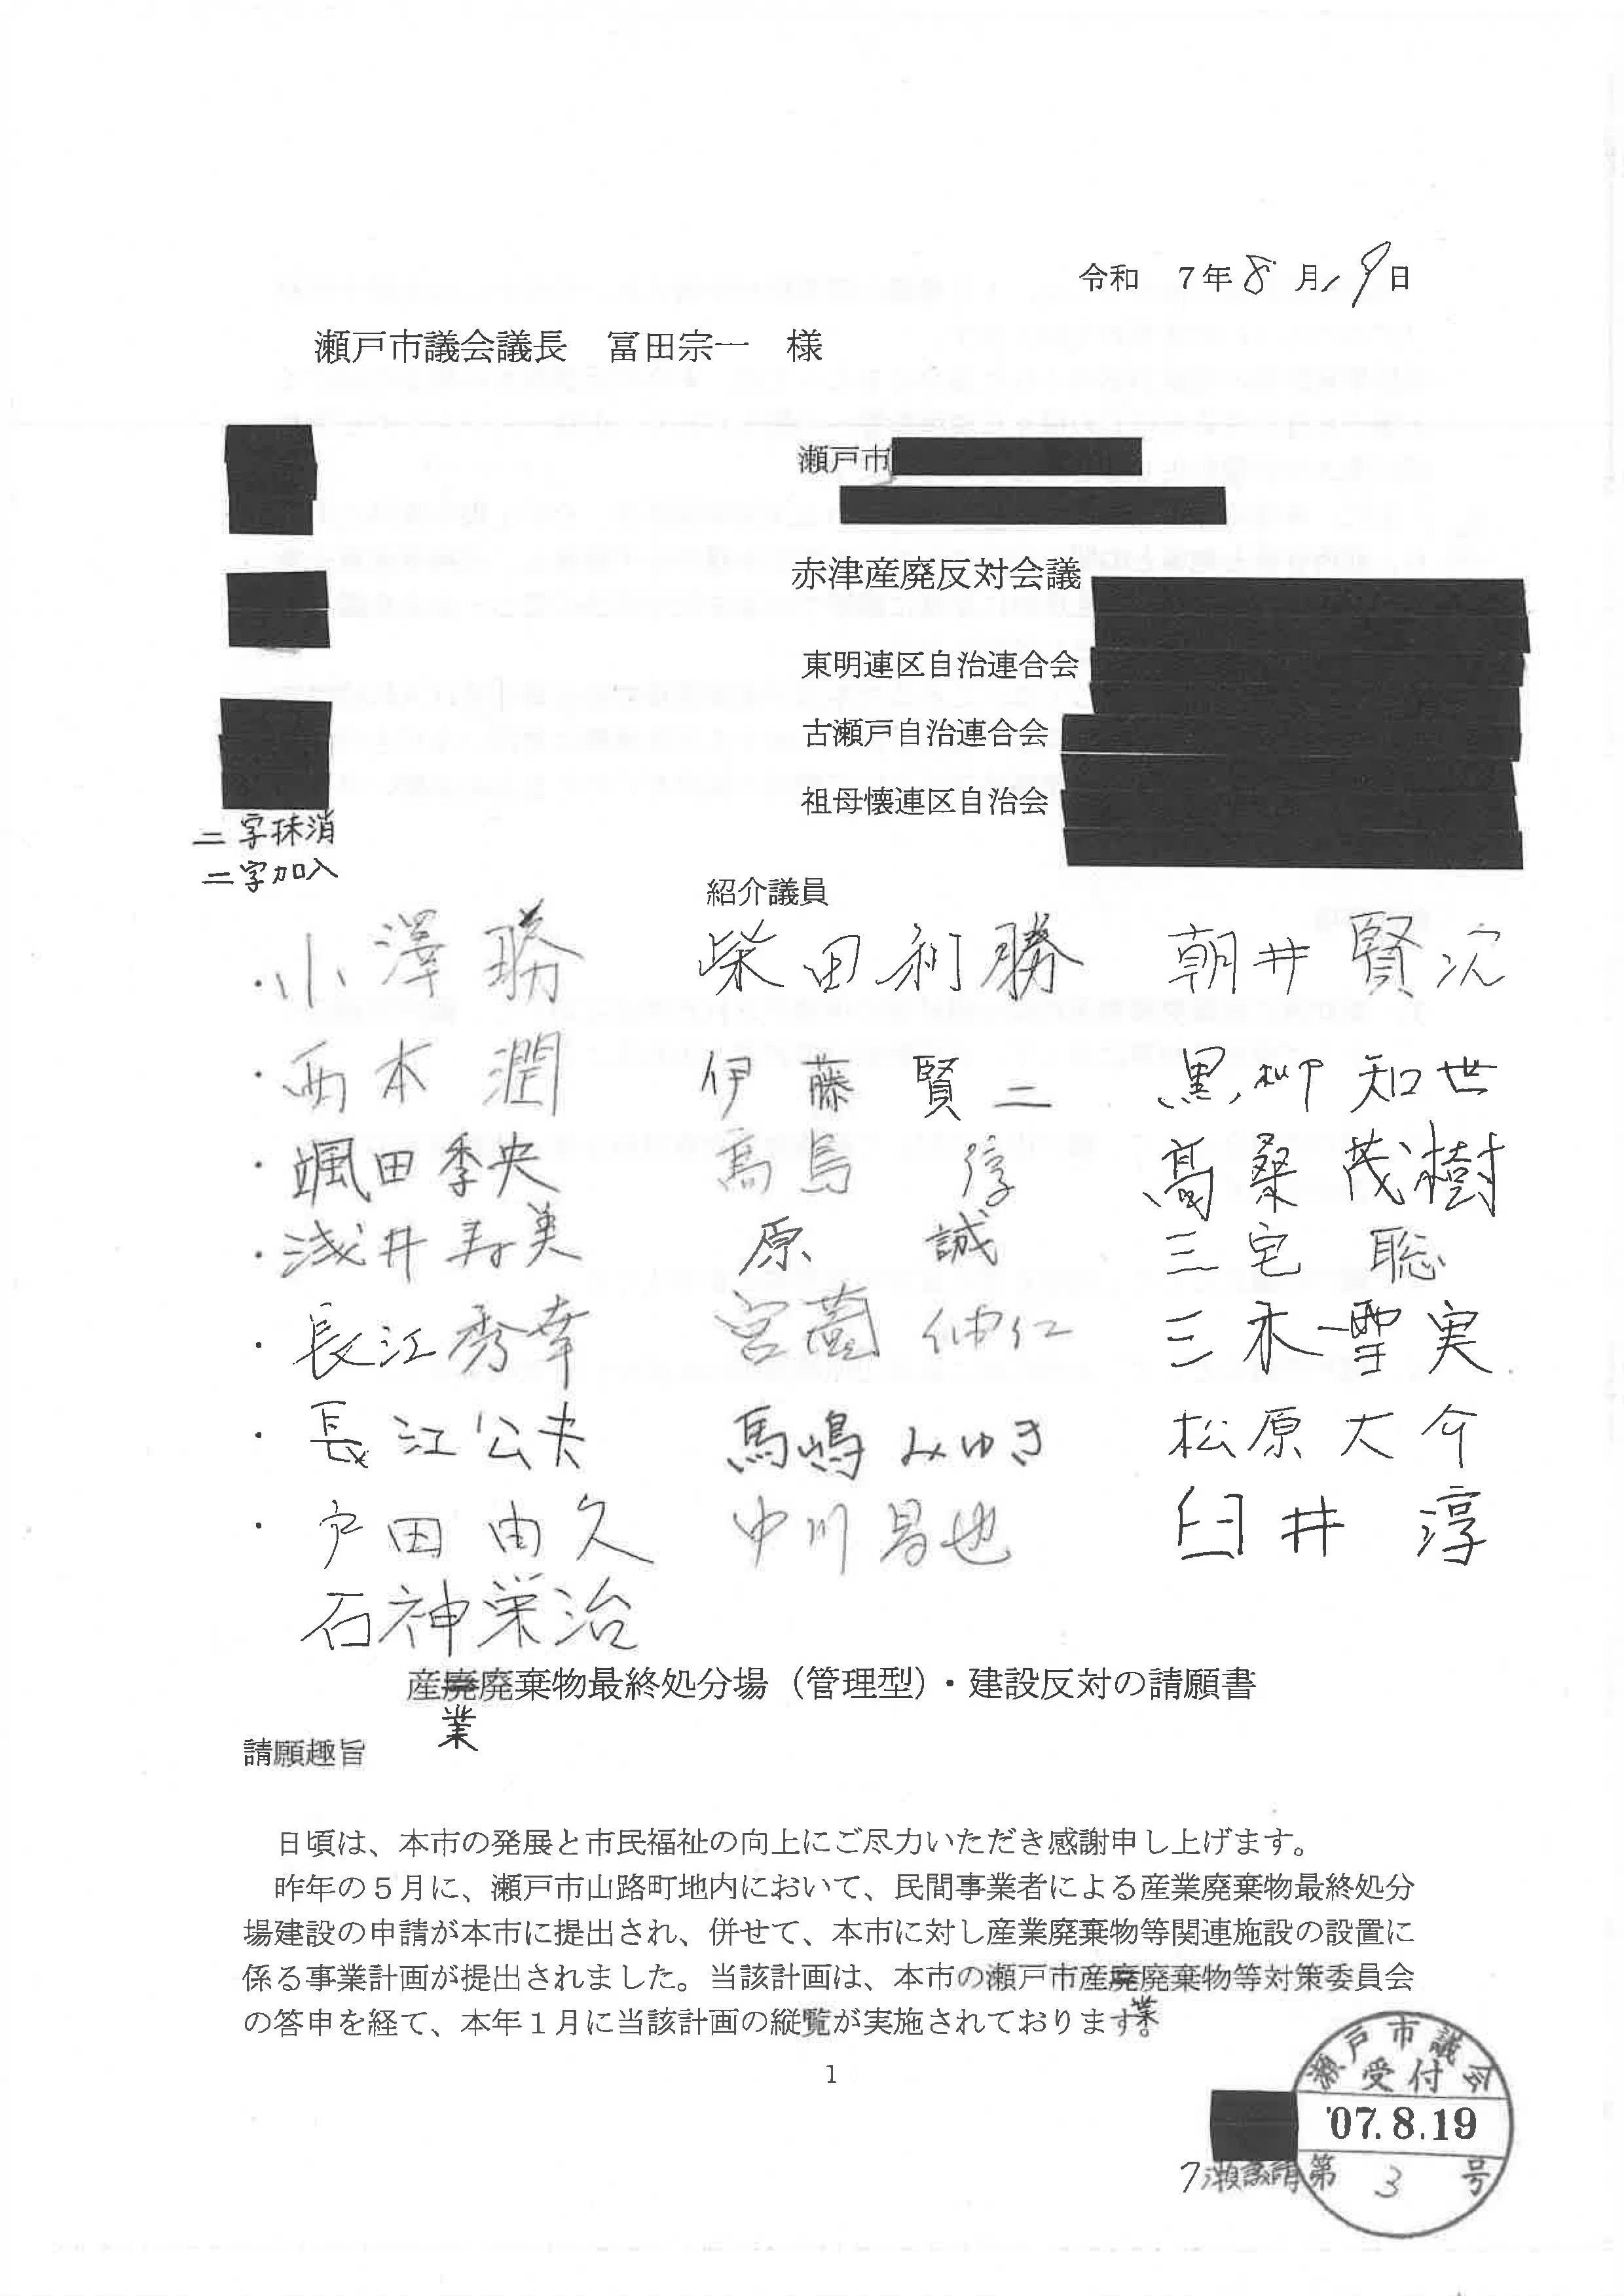 令和 7年8月19日
瀬戸市議会議長 冨田宗一 様
瀬戸市
赤津産廃反対会議
東明連区自治連合会
古瀬戸自治連合会
祖母懐連区自治会
二字抹消
二字加入
紹介議員
・小澤 勝 柴田利勝 朝井賢次
・西本 潤 伊藤賢二 黒柳知世
・颯田季央 髙島 淳 髙桑茂樹
・浅井寿美 原 誠 三宅 聡
・長江秀幸 宮薗伸仁 三木雪実
・長江公夫 馬嶋みゆき 松原大介
・戸田由久 中川昌也 臼井 淳
石神栄治
産廃廃棄物最終処分場（管理型）・建設反対の請願書
業
請願趣旨
日頃は、本市の発展と市民福祉の向上にご尽力いただき感謝申し上げます。
昨年の５月に、瀬戸市山路町地内において、民間事業者による産業廃棄物最終処分
場建設の申請が本市に提出され、併せて、本市に対し産業廃棄物等関連施設の設置に
係る事業計画が提出されました。当該計画は、本市の瀬戸市産廃廃棄物等対策委員会
業
の答申を経て、本年１月に当該計画の縦覧が実施されております。
1
瀬戸市議会
受付
'07.8.19
7瀬議請第 3 号